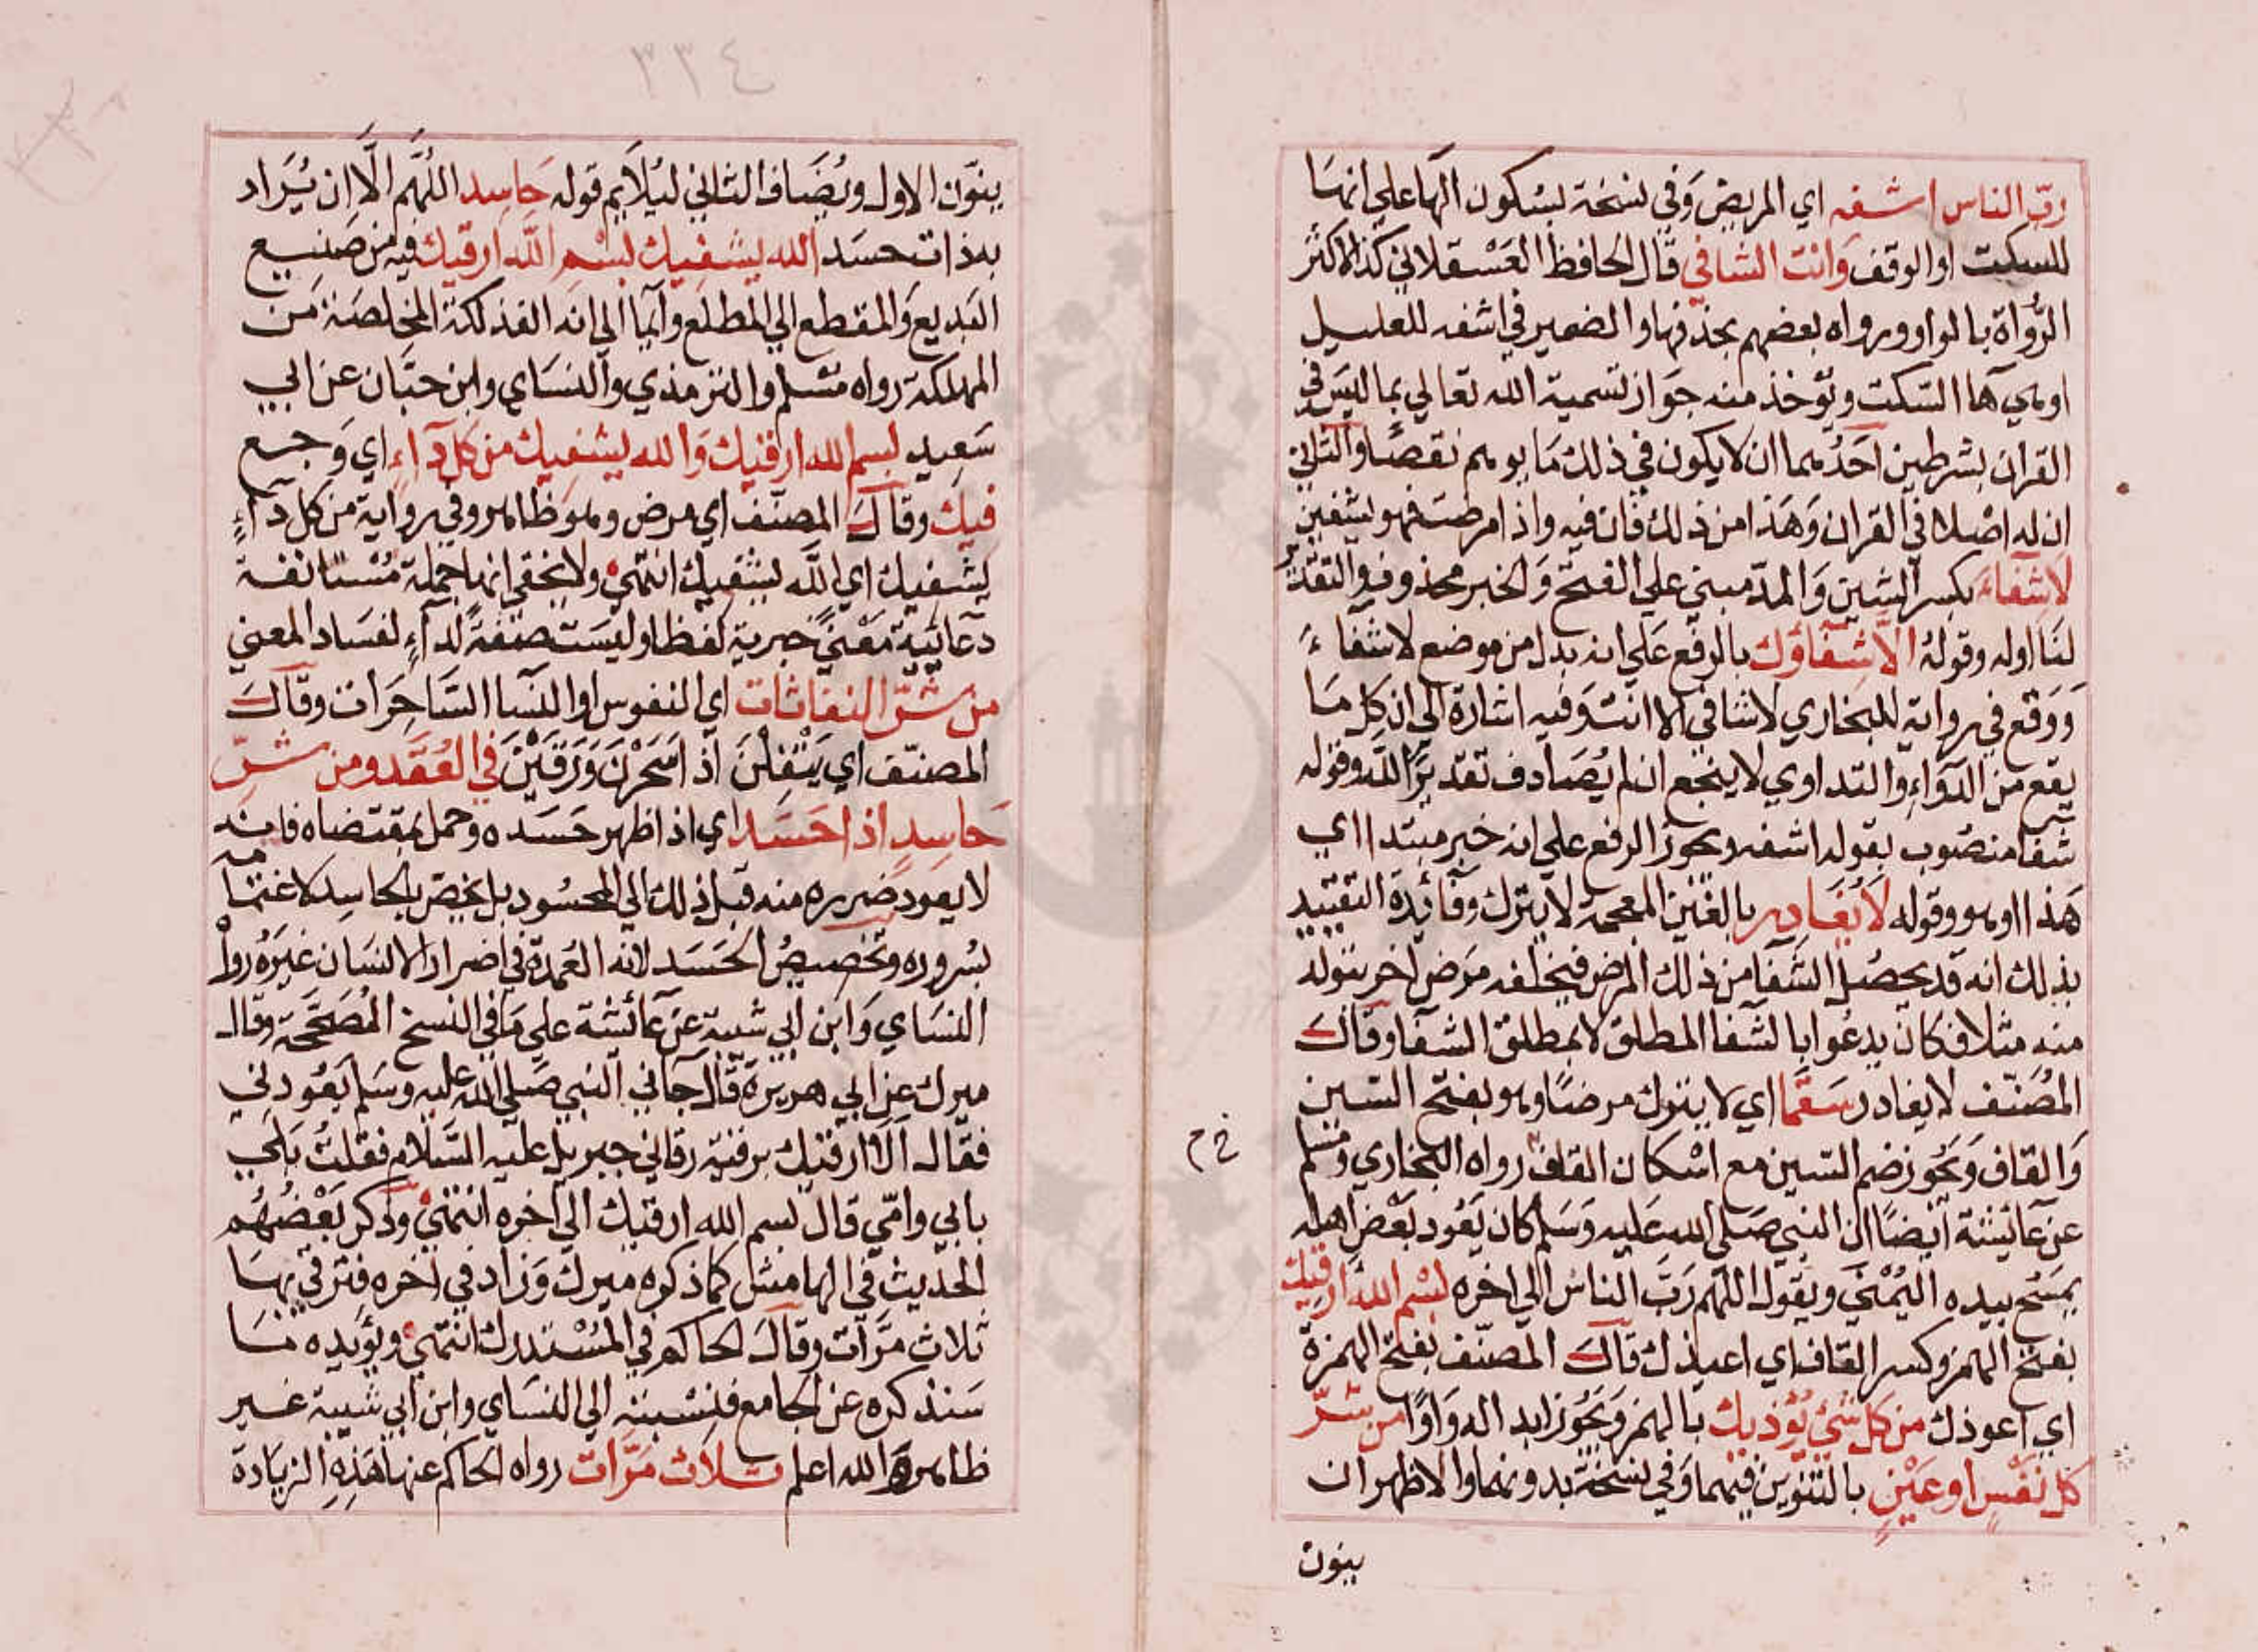 رب الناس اشفه اي المريض وفي نسخة بسكون الها علي انها
للسكت او الوقف وانت الشافي قال الحافظ العسقلاني كذا لاكثر
الرواة بالواو ورواه بعضهم بحذفها والضمير في اشفه للعليل
او هي ها السكت ويؤخذ منه جواز تسمية الله تعالي بما ليس في
القران بشرطين احدهما ان لا يكون في ذلك ما يوهم نقصا والثاني
ان له اصلا في القران وهذا من ذلك فان فيه واذا مرضت فهو يشفين
لا شفاء بكسر الشين والمد مبني علي الفتح والخبر محذوف والتقدير
لنا اوله وقوله الا شفاؤك بالرفع علي انه بدل من موضع لا شفاء
ووقع في رواية للبخاري لا شافي الا انت وفيه اشارة الي ان كل ما
يقع من الدواء والتداوي لا ينجع ان لم يصادف تقدير الله وقوله
شفا منصوب بقوله اشفه ويجوز الرفع علي انه خبر مبتدا اي
هذا او هو وقوله لا يغادر بالغين المعجمة لا يترك وفائدة التقييد
بذلك انه قد يحصل الشفا من ذلك المرض فيخلفه مرض اخر يتوله
منه مثلا فكان يدعو ابا لشفا المطلق لا بمطلق الشفا وقال
المصنف لا يغادر سقما اي لا يترك مرضا وهو بفتح السين
والقاف ويجوز ضم السين مع اسكان القاف رواه البخاري ومسلم
عن عائشة ايضا ان النبي صلي الله عليه وسلم كان يعود بعض اهله
يمسح بيده اليمني ويقول اللهم رب الناس الي اخره بسم الله ارقيك
بفتح الهمز وكسر القاف اي اعيذك قال المصنف بفتح الهمزة
اي اعوذك من كل شئ يؤذيك بالهمز ويجوز ابداله واوا من شر
كل نفس او عين بالتنوين فيهما وفي نسخة بدونهما والاظهر ان
ينون
٣٣٤
ينون الاول ويضاف الثاني ليلايم قوله حاسد اللهم الا ان يراد
بذات حسد الله يشفيك بسم الله ارقيك فيه من صنيع
البديع والمقطع الي المطلع وايما الي انه الفذلكة المخلصة من
المهلكة رواه مسلم والترمذي والنساي وابن حبان عن ابي
سعيد بسم الله ارقيك والله يشفيك من كل داء اي وجع
فيك وقال المصنف اي مرض وهو ظاهر وفي رواية من كل داء
يشفيك اي الله يشفيك انتهي ولا يخفي انها جملة مستانفة
دعائية معني خبرية لفظا وليست صفة لداء لفساد المعني
من شر النفاثات اي النفوس او النسا الساحرات وقال
المصنف اي يتفلن اذا سحرن ورقين في العقد ومن شر
حاسد اذا حسد اي اذا ظهر حسده وحمل بمقتضاه فانه
لا يعود ضرره منه قبل ذلك الي المحسود بل يخص بالحاسد لاغتمامه
بسروره وتخصيص الحسد لانه العمدة في اضرار الانسان غيره رواه
النساي وابن ابي شيبة عن عائشة علي ما في النسخ المصححة وقال
ميرك عن ابي هريرة قال جاني النبي صلي الله عليه وسلم يعودني
فقال الا ارقيك برقية رقاني جبريل عليه السلام فقلت بلي
بابي وامي قال بسم الله ارقيك الي اخره انتهي وذكر بعضهم
الحديث في الهامش كما ذكره ميرك وزاد في اخره فترقي بها
ثلاث مرات وقال الحاكم في المستدرك انتهي ويؤيده ما
سنذكره عن الجامع فنسبته الي النساي وابن ابي شيبة غير
ظاهرة والله اعلم ثلاث مرات رواه الحاكم عنها هذه الزيادة